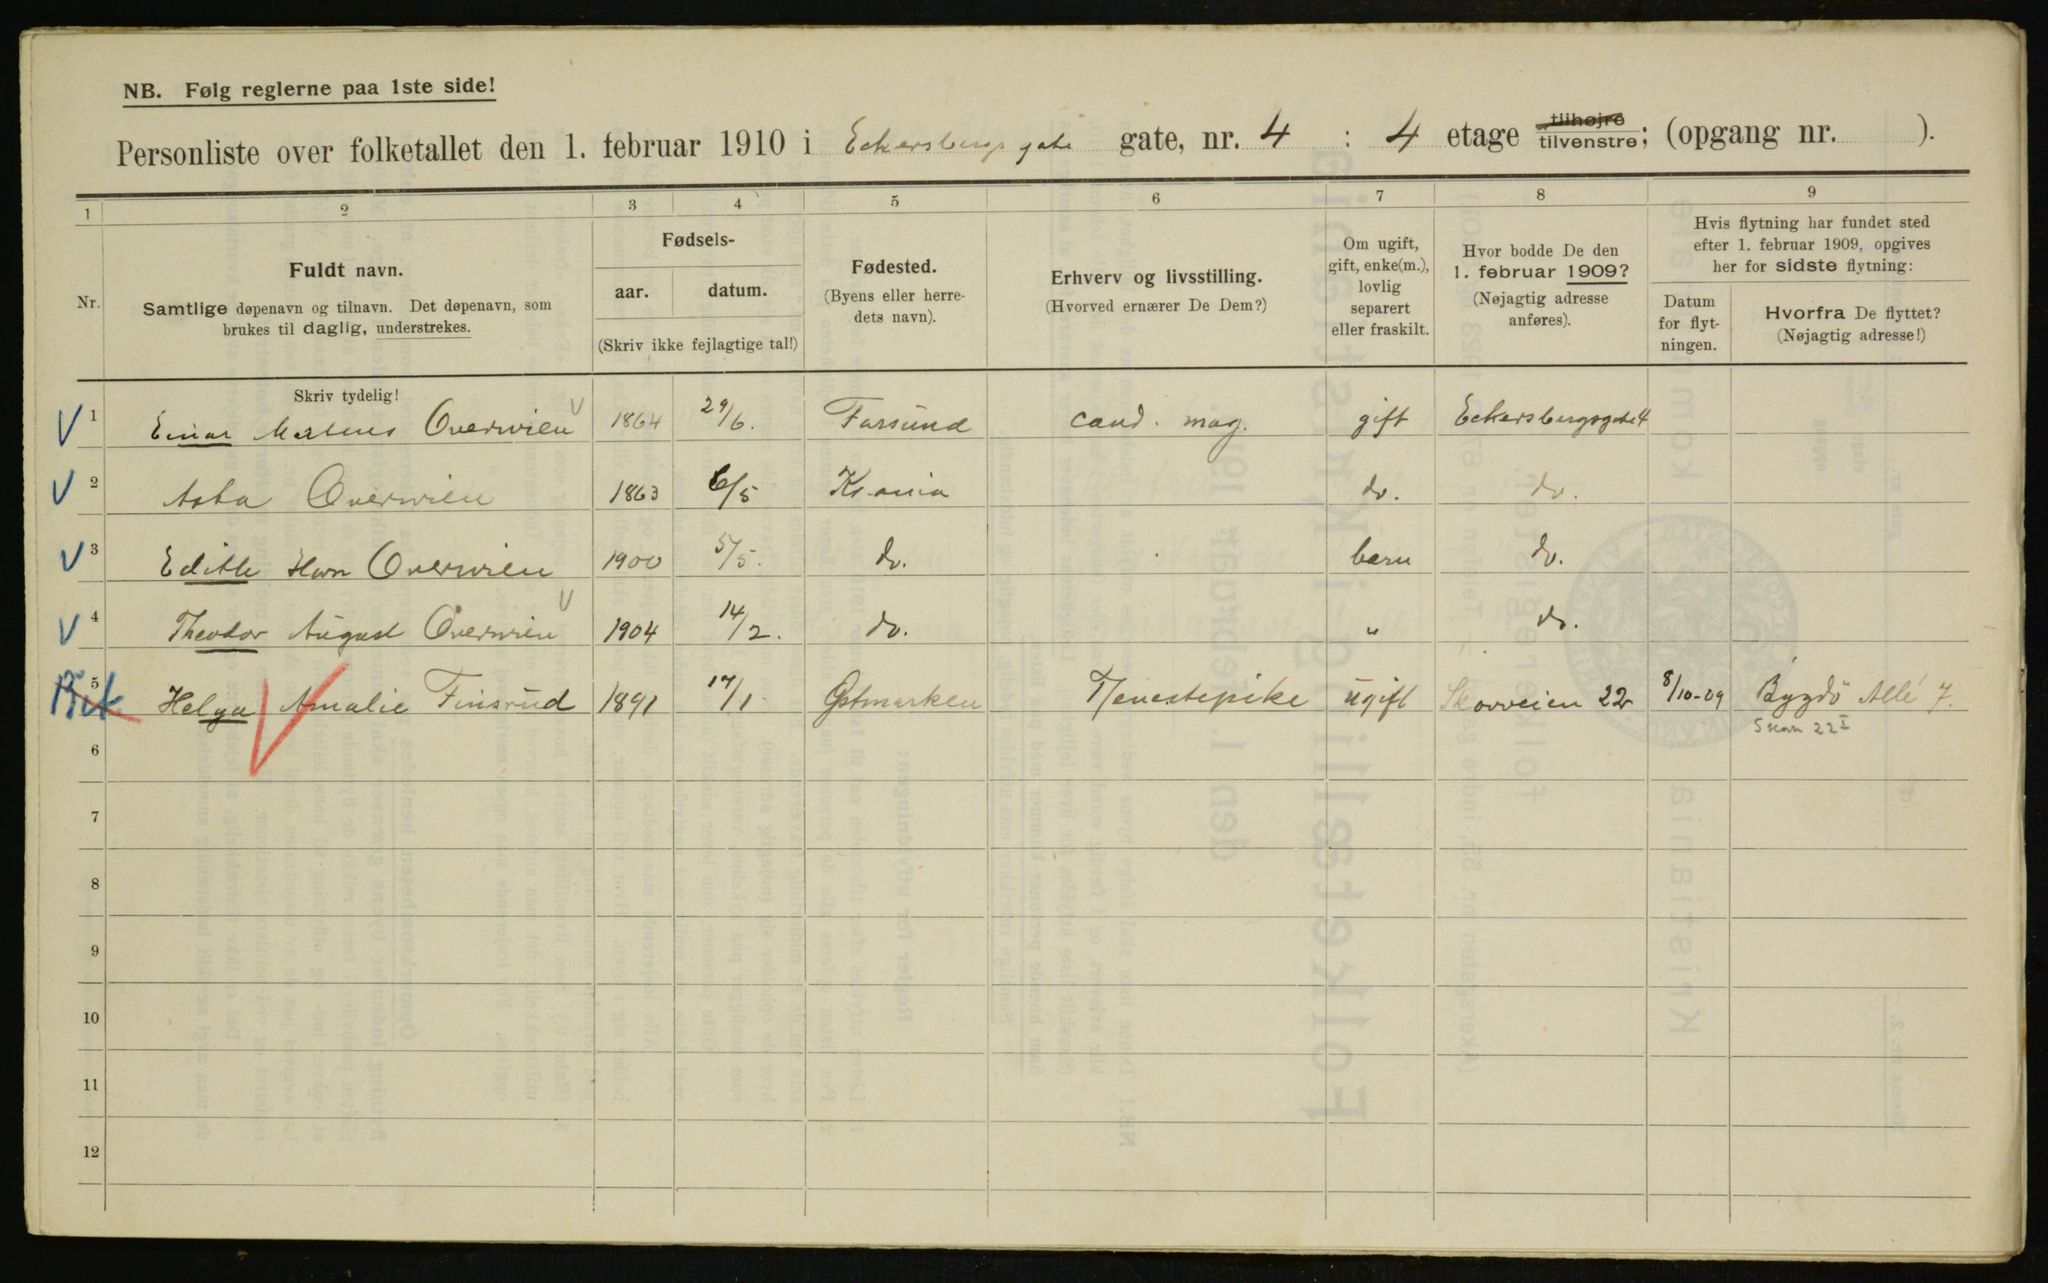 NB. Følg reglerne paa 1ste side!
Personliste over folketallet den 1. februar 1910 i Eckersbergs gate gate, nr. 4 : 4 etage tilhøjre tilvenstre; (opgang nr. ).
1 2 3 4 5 6 7 8 9
Nr.
Fuldt navn.
Samtlige døpenavn og tilnavn. Det døpenavn, som
brukes til daglig, understrekes.
Skriv tydelig!
Fødsels-
aar. datum.
(Skriv ikke fejlagtige tal!)
Fødested.
(Byens eller herre-
dets navn).
Erhverv og livsstilling.
(Hvorved ernærer De Dem?)
Om ugift,
gift, enke(m.),
lovlig
separert
eller fraskilt.
Hvor bodde De den
1. februar 1909?
(Nøjagtig adresse
anføres).
Hvis flytning har fundet sted
efter 1. februar 1909, opgives
her for sidste flytning:
Datum
for flyt-
ningen.
Hvorfra De flyttet?
(Nøjagtig adresse!)
V 1 Einar Overwien V 1864 29/6. Farsund cand. mag. gift Eckersbergsgate 4
V 2 Asta Overwien 1863 6/5 Kr.ania do. do.
V 3 Edith Horn Overwien 1900 5/5. do. barn do.
V 4 Theodor August Overwien V 1904 14/2. do. " do.
5 Helga Amalie Finsrud 1891 17/1 Østmarken Tjenestepike ugift Skovveien 22 8/10-09 Bygdö Allé 7.
Skov 22 I
6
7
8
9
10
11
12